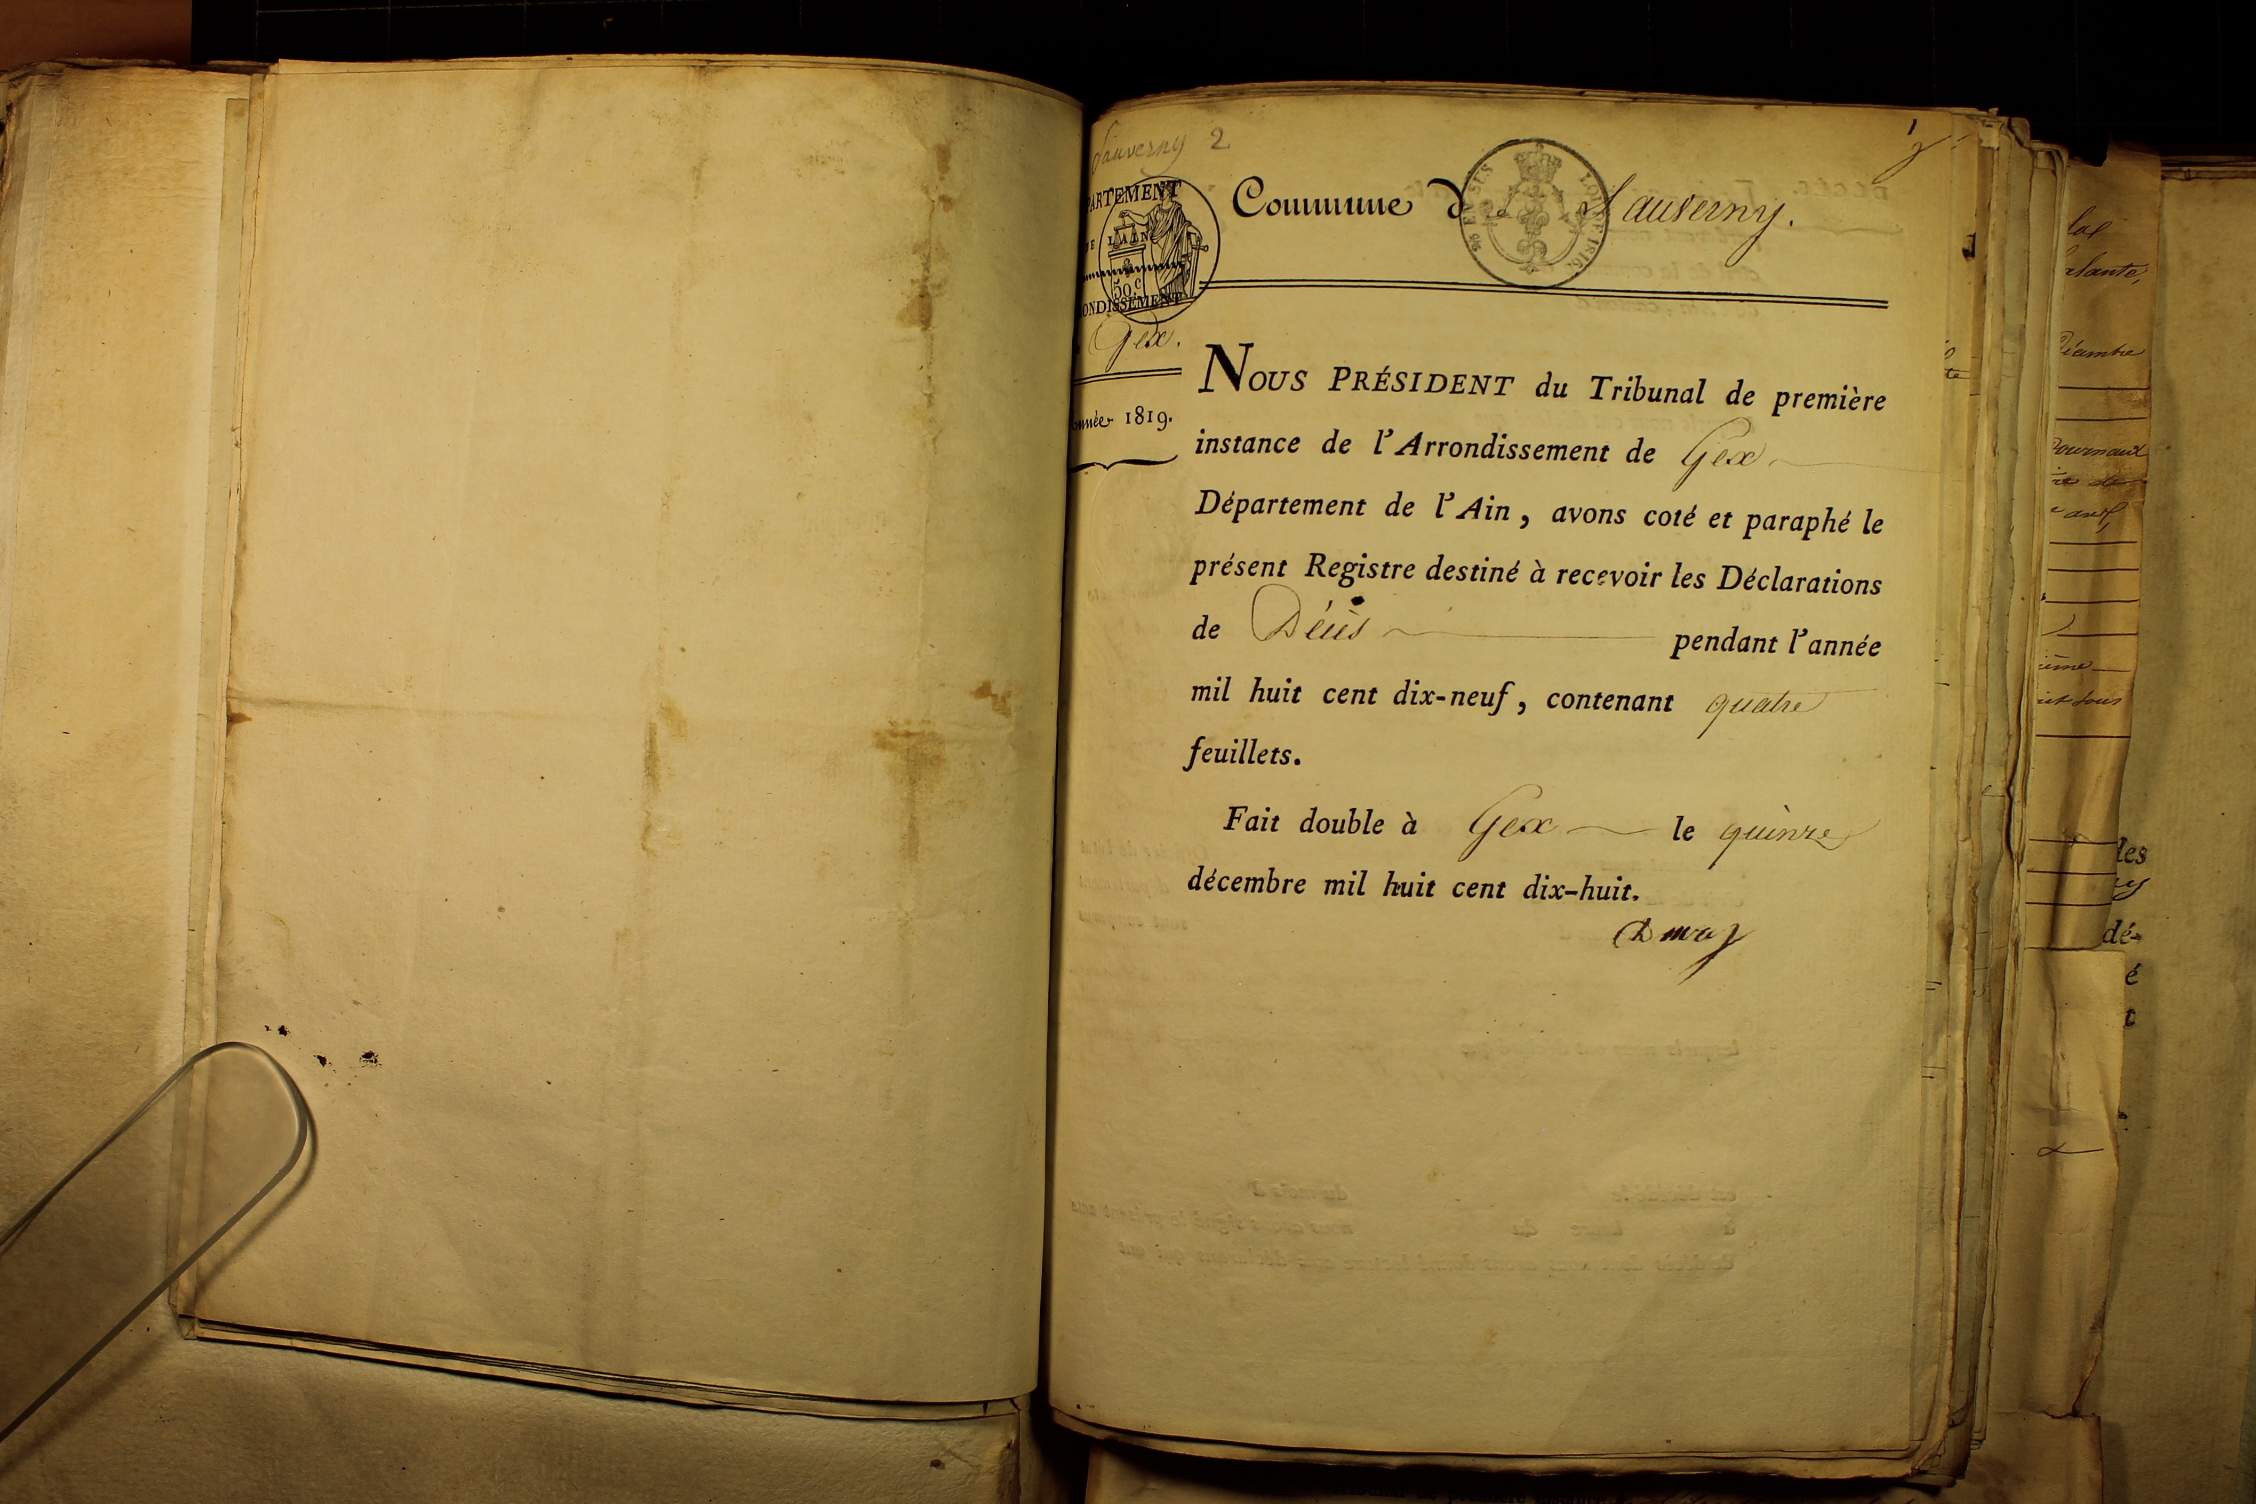 Sauverny 2
1
PARTEMENT
DE L'AIN
50 c
ONDISSEMENT
Gex.
nnée 1819.
Commune d Sauverny.
LOI DE 1816.
NOUS PRÉSIDENT du Tribunal de première
instance de l'Arrondissement de Gex
Département de l'Ain, avons coté et paraphé le
présent Registre destiné à recevoir les Déclarations
de Décès pendant l'année
mil huit cent dix-neuf, contenant quatre
feuillets.
Fait double à Gex le quinze
décembre mil huit cent dix-huit.
alante,
Décembre
ournaux
avril
ième
des
dé-
é
t